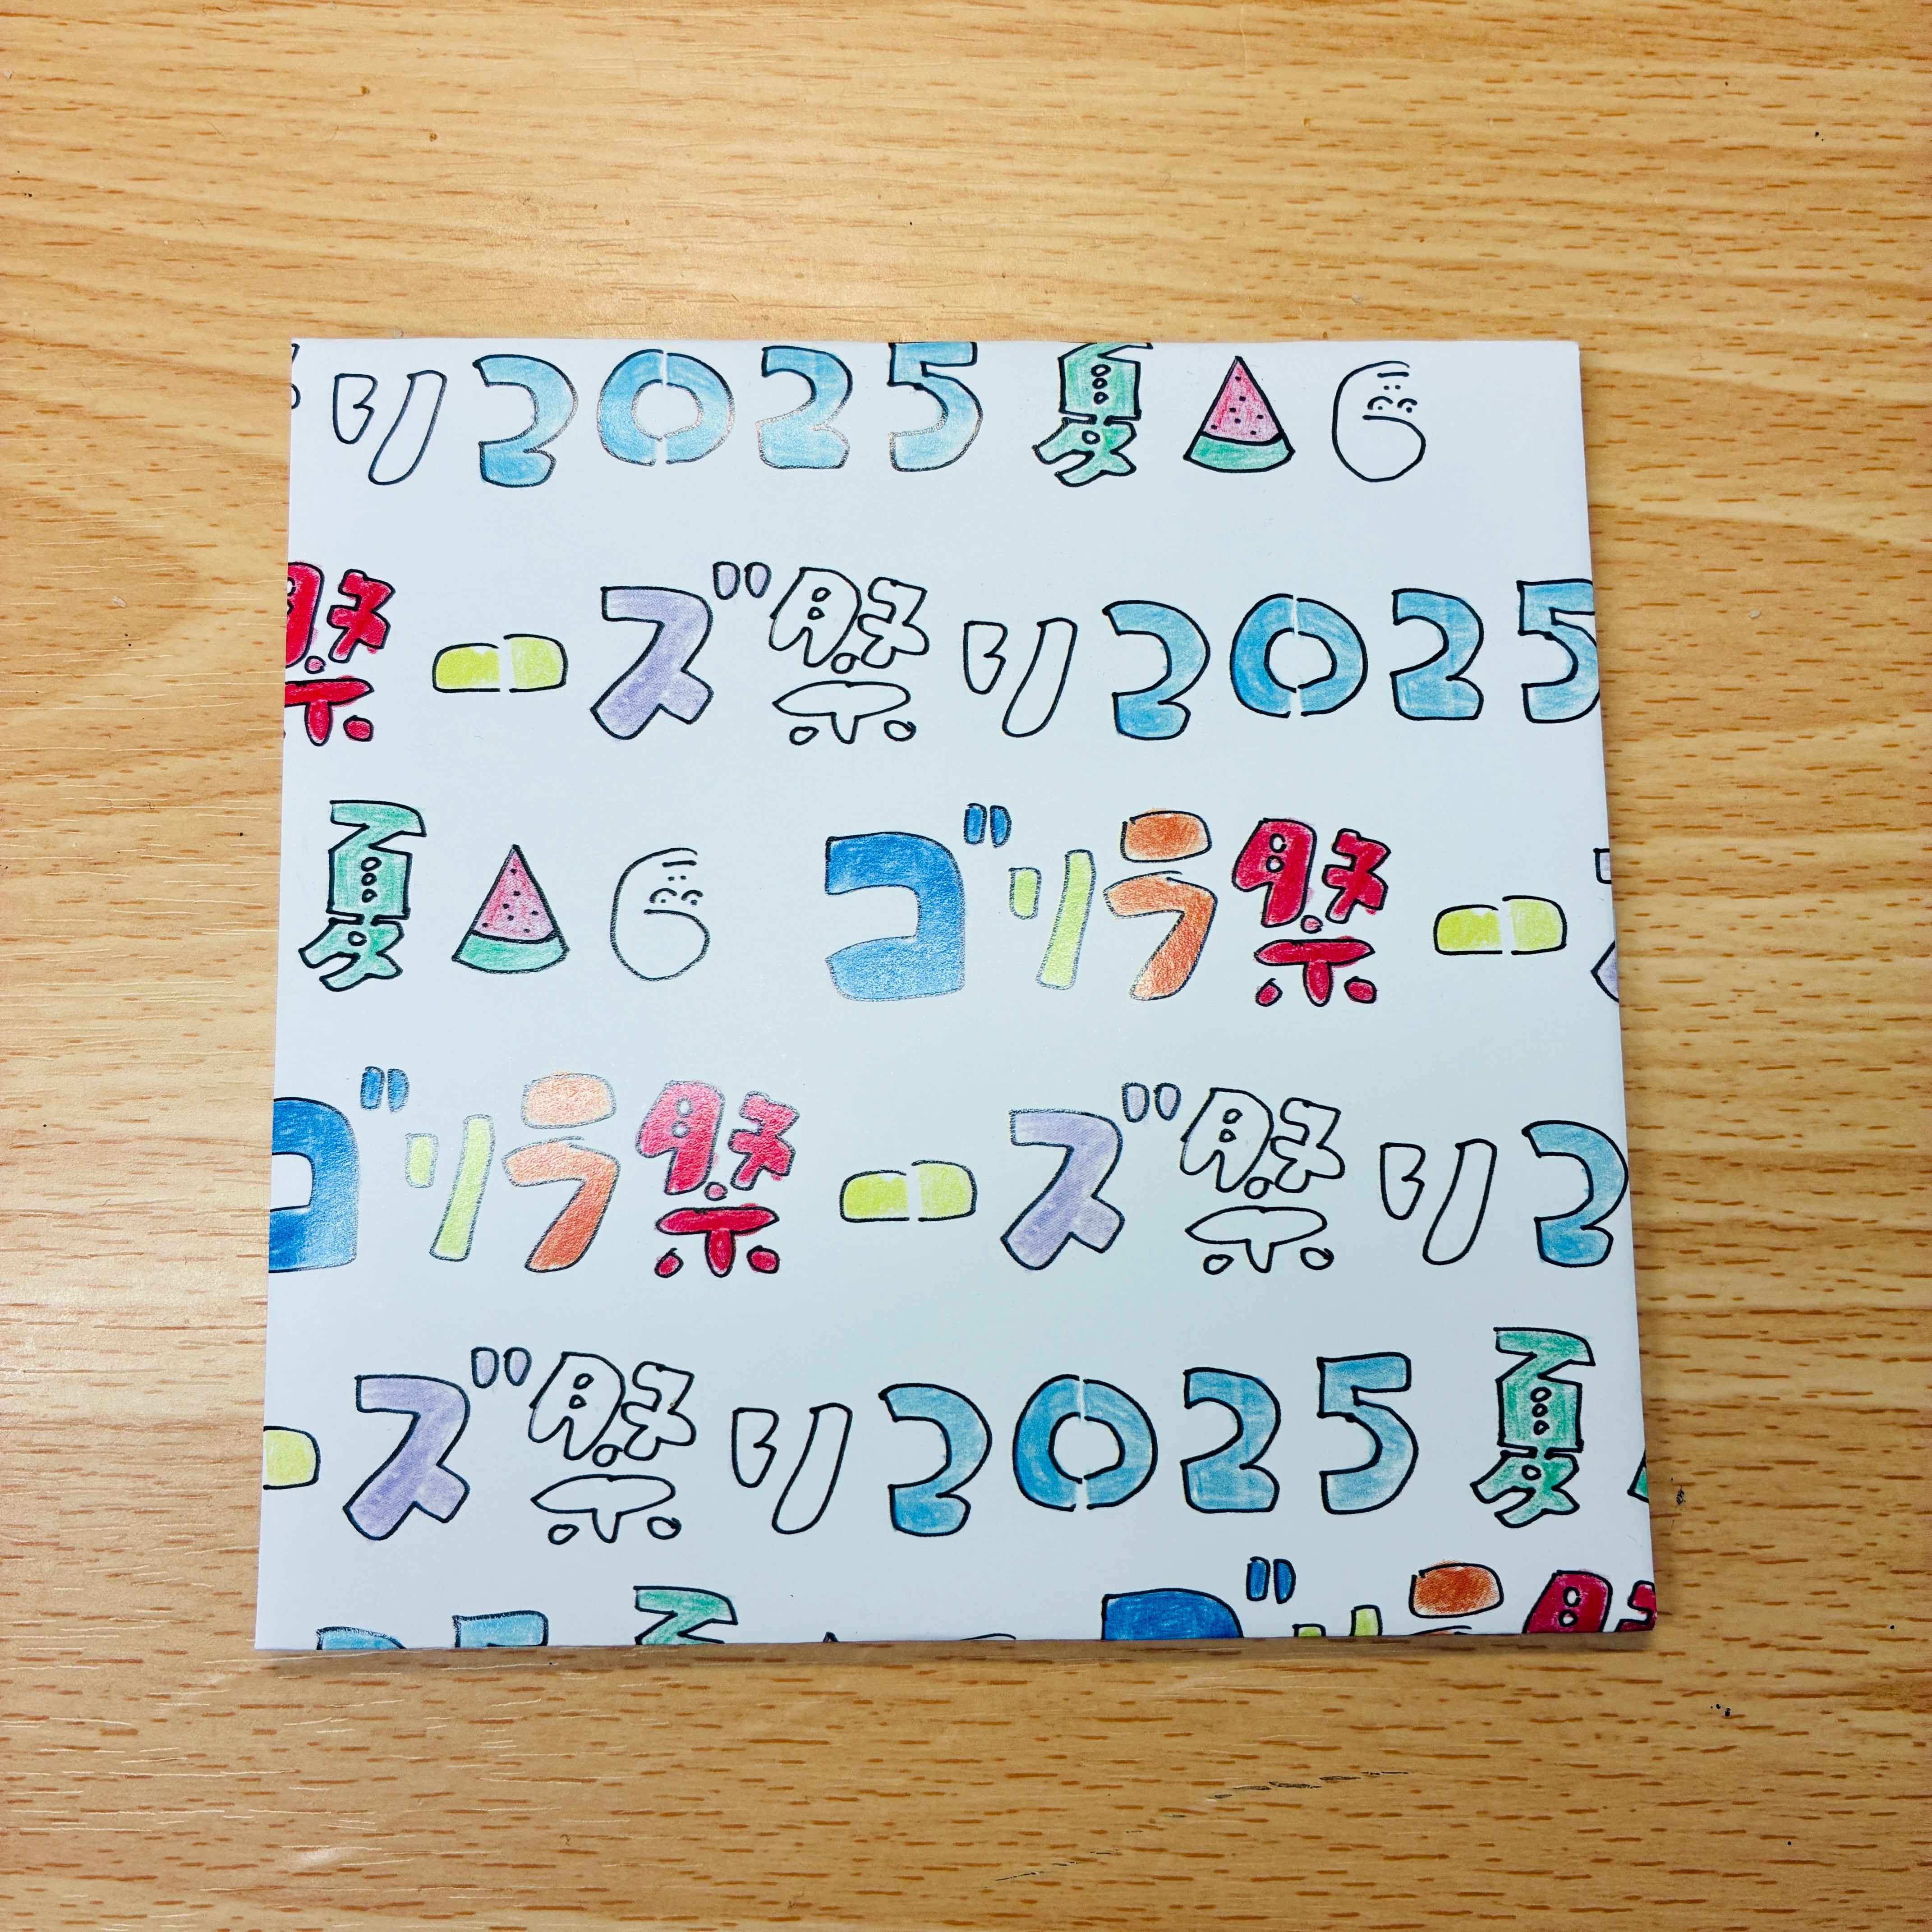 り2025夏
祭ーズ祭り2025
夏 ゴリラ祭ー
ゴリラ祭ーズ祭り2
ーズ祭り2025夏
25夏 ゴリラ祭